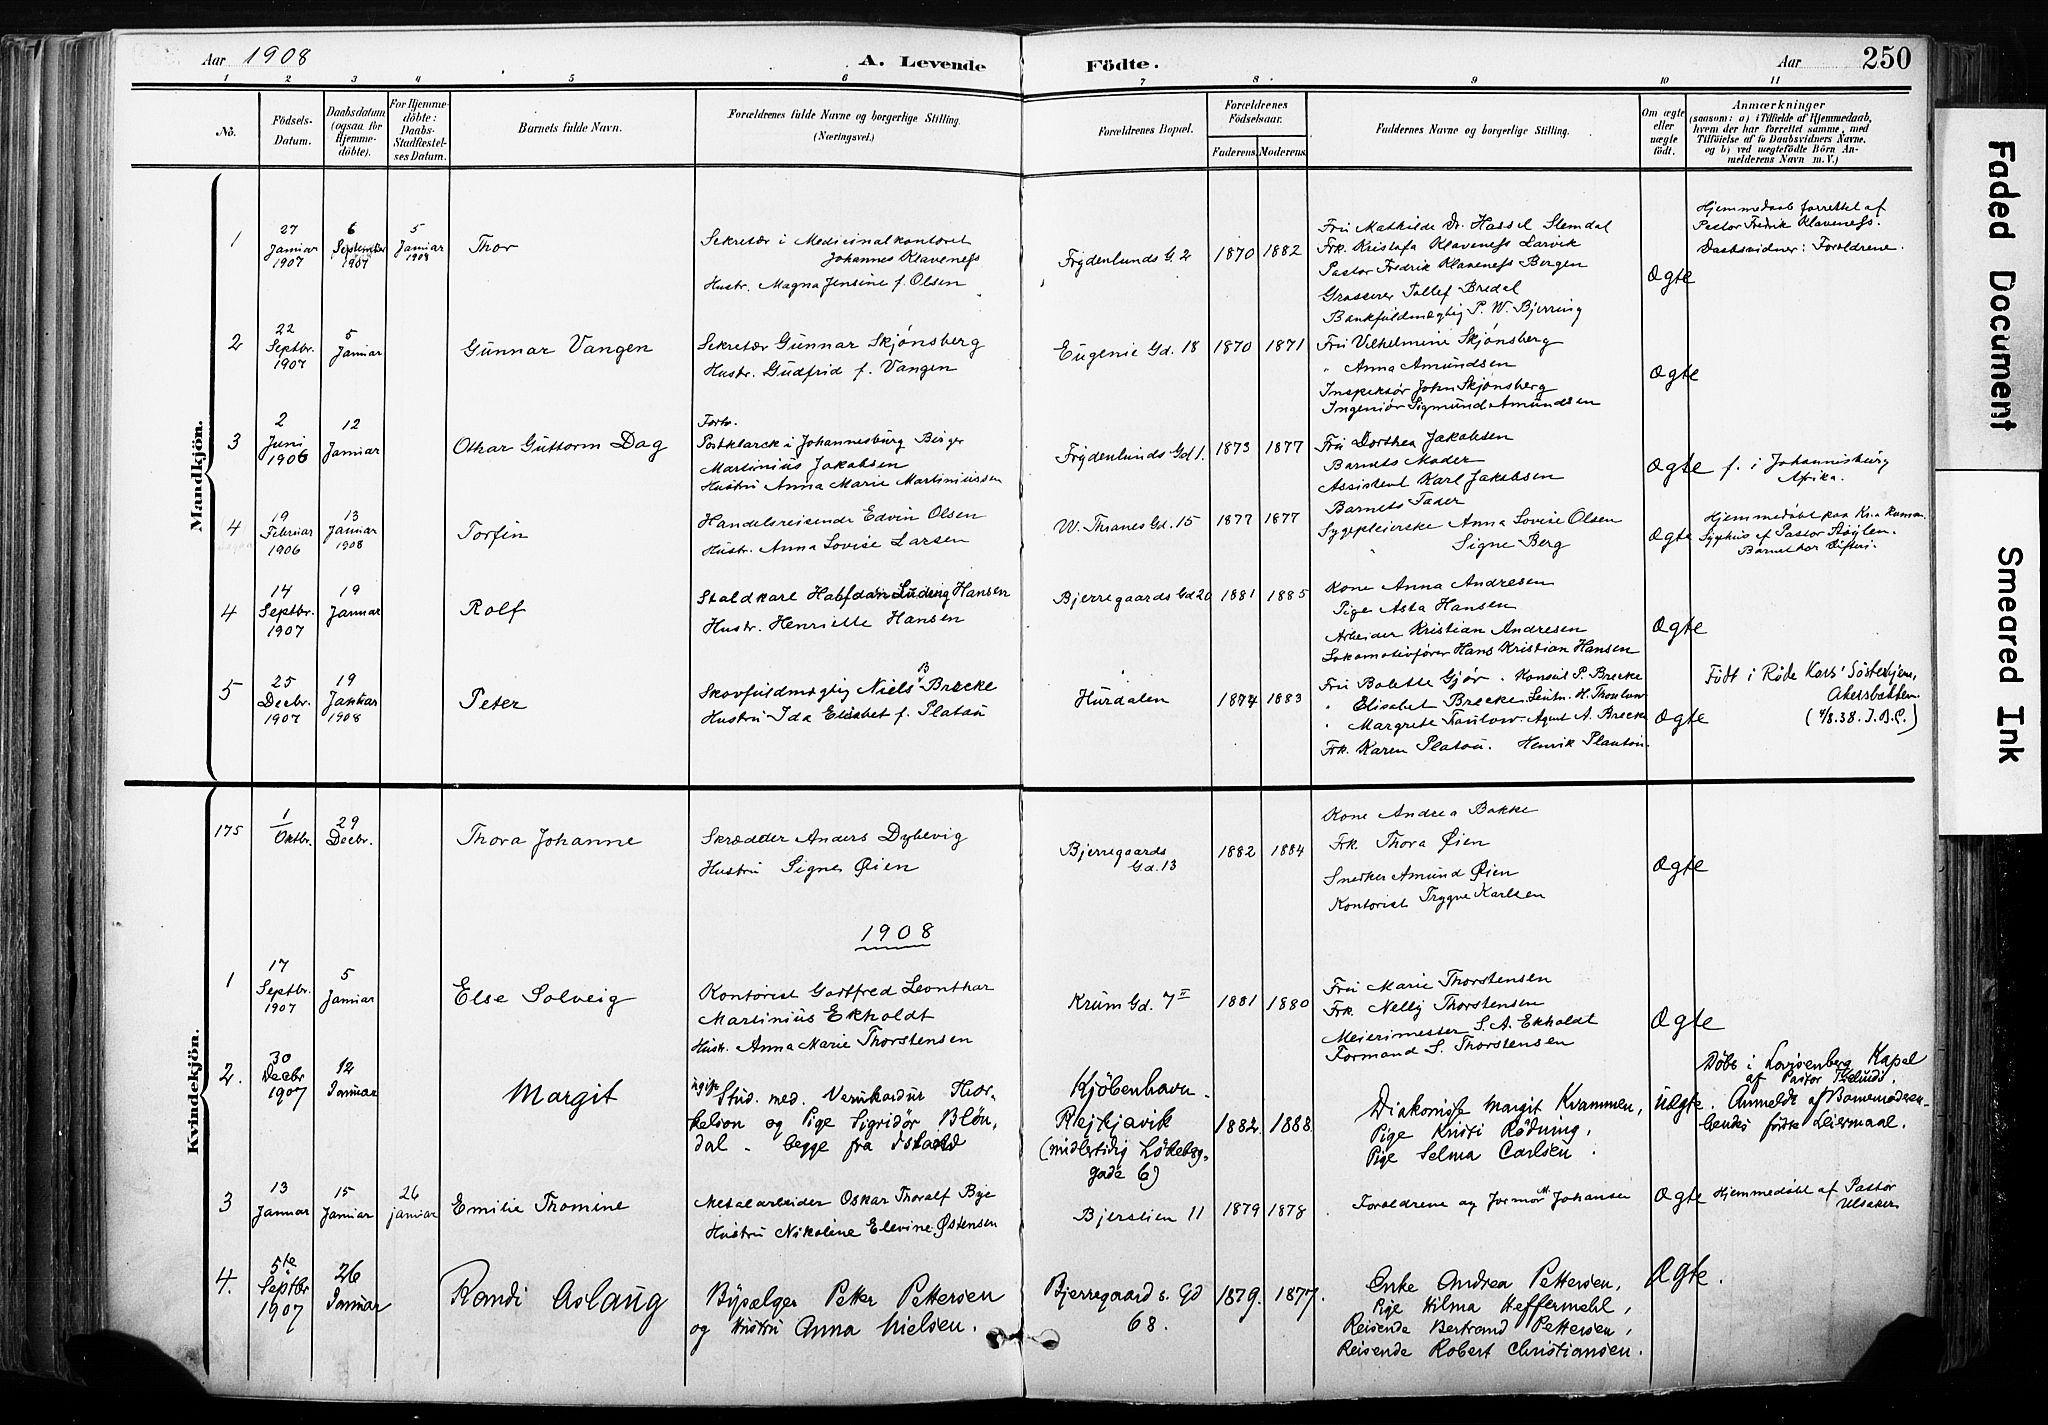 Aar 1908
A. Levende Födte.
Aar
250
1 2 3 4 5 6 7 8 9 10 11
No.
Födsels-
Datum.
Daabsdatum
(ogsaa for
Hjemme-
döbte).
For Hjemme-
döbte:
Daabs-
Stadfæstel-
ses Datum.
Barnets fulde Navn.
Forældrenes fulde Navne og borgerlige Stilling.
(Næringsvei.)
Forældrenes Bopæl.
Forældrenes
Födselsaar.
Faderens. Moderens.
Faddernes Navne og borgerlige Stilling.
Om ægte
eller
uægte
födt.
Anmærkninger
(saasom: a) i Tilfælde af Hjemmedaab,
hvem der har forrettet samme, med
Tilföielse af to Daabsvidners Navne,
og b) ved uægtefödte Börn An-
melderens Navn m. V.)
Mandkjön.
1
27
Januar
1907
6
September
1907
5
Januar
1908
Thor
Sekretær i Medicinalkontoret
Johannes Klaveness
Hustr. Magna Jensine f. Olsen
Frydenlunds G. 2
1870 1882
Fru Mathilde Dr. Hassel Slemdal
Frk. Kristofa Klaveness Larvik
Pastor Fredrik Klaveness Bergen
Grosserer Tollef Bredal
Bankfuldmægtig P. W. Bjerring
Ægte
Hjemmedaab forrettet af
Pastor Fredrik Klaveness.
Daabsvidner: Forældrene.
2
22
Septbr.
1907
5
Januar
Gunnar Vangen
Sekretær Gunnar Skjønsberg
Hustr. Gudfrid f. Vangen
Eugenie Gd. 18
1870 1871
Fru Vilhelmine Skjønsberg
" Anna Amundsen
Inspektør John Skjønsberg
Ingeniør Sigmund Amundsen
Ægte
3
2
Juni
1906
12
Januar
Othar Guttorm Dag
Forh.
Postklarck i Johannesburg Birger
Martinius Jakobsen
Hustru Anna Marie Martiniussen
Frydenlunds Gd 1.
1873 1877
Fru Dorthea Jakobsen
Barnets Moder
Assistent Karl Jakobsen
Barnets Fader
Ægte
f. i Johannisburg
Afrika.
4
19
Februar
1906
13
Januar
1908
Torfin
Handelsreisende Edvin Olsen
Hustr. Anna Lovise Larsen
W. Thranes Gd. 15
1877 1877
Sygepleierske Anna Lovise Olsen
" Signe Berg
Ægte
Hjemmedøbt paa Kr.a Kommun.
Sygehus af Pastor Støylen.
Barnet har Difteri.
4
14
Septbr.
1907
19
Januar
Rolf
Staldkarl Halfdan Ludvig Hansen
Hustr. Henriette Hansen
Bjerregaards Gd 20
1881 1885
Kone Anna Andresen
Pige Asta Hansen
Arbeider Kristian Andresen
Lokomotivfører Hans Kristian Hansen
Ægte
5
25
Decbr.
1907
19
Januar
1908
Peter
Skovfuldmægtig Niels B Brecke
Hustru Ida Elisabet f. Platou
Hurdalen
1874 1883
Fru Bolette Gjør. Konsul P. Brecke
" Elisabet Brecke. Leutn. H. Thaulow
" Margrete Taulow. Agent A. Brecke
Frk. Karen Platou. Henrik Plantou.
Ægte
Født i Røde Kors' Søsterhjem,
(4/8.38. J.B.C.)
Kvindekjön.
175
1
Oktbr.
29
Decbr.
Thora Johanne
Skrædder Anders Dybevig
Hustru Signe Øien
Bjerregaards
Gd. 13
1882 1884
Kone Andrea Bakke
Frk. Thora Øien
Snedker Amund Øien
Kontorist Trygve Karlsen
Ægte
1908
1
17
Septbr.
1907
5
Januar
Else Solveig
Kontorist Gottfred Leonthar
Martinius Ekholdt
Hustr. Anna Marie Thorstensen
Krum Gd. 7 II
1881 1880
Fru Marie Thorstensen
Frk. Nelly Thorstensen
Meierimester S. A. Ekholdt
Formand S. Thorstensen
Ægte
2.
30
Decbr
1907
12
Januar
Margit
ugift Stud. med. Vernhardur Thor-
kelson og Pige Sigridør Bløn-
dal. begge fra Island
Kjöbenhavn.
Rejkjavik
(midlertidig Lökeberg-
gade 6)
1882. 1888
Diakonisse Margit Kvammen,
Pige Kristi Rödning,
Pige Selma Carlsen.
Uægte.
Döbt i Lovisenberg Kapel
af Pastor Thelund.
Anmeldt af Barnemoderen.
begges förste Leiermaal.
3
13
Januar
15
Januar
26
januar
Emilie Tromine
Metalarbeider Oskar Thoralf Bye
Hustru Nikoline Elevine Østensen
Bjerstien 11
1879 1878
Forældrene og Jormor M. Johansen
Ægte
Hjemmedöbt af Pastor
Ulsaker
4.
5te
Septbr
1907
26
Januar
Randi Aslaug
Bypælger Petter Pettersen
og Hustru Anna Nielsen.
Bjerregaards. Gd
68.
1879. 1877.
Enke Andrea Pettersen,
Pige Hilma Heffermehl,
Reisende Bertrand Pettersen,
Reisende Robert Christiansen.
Ægte.
Faded Document
Smeared Ink